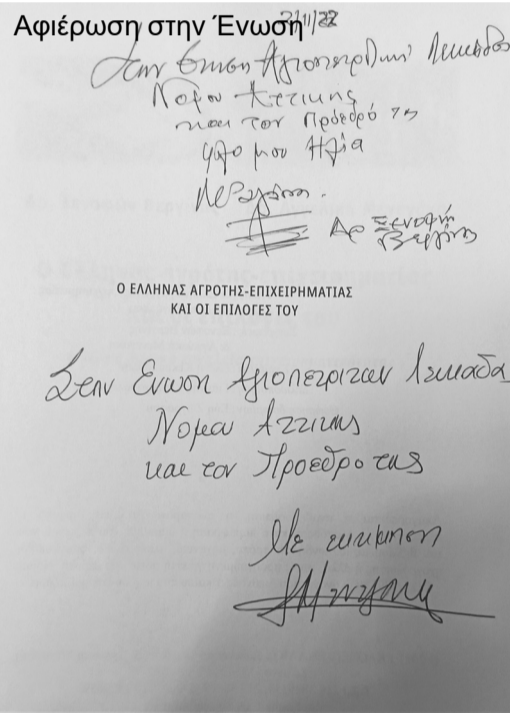 Αφιέρωση στην Ένωση
2/11/22
Στην Ένωση Αγιοπετριτών Λευκάδος
Νομού Αττικής
και τον Πρόεδρό της
φίλο μου Ηλία
Δρ Ξενοφών
Βεργίνης
Ο ΕΛΛΗΝΑΣ ΑΓΡΟΤΗΣ-ΕΠΙΧΕΙΡΗΜΑΤΙΑΣ
ΚΑΙ ΟΙ ΕΠΙΛΟΓΕΣ ΤΟΥ
Στην Ενωση Αγιοπετριτων Λευκαδα
Νομου Αττικης
και τον Προεδρο της
Με εκτιμηση